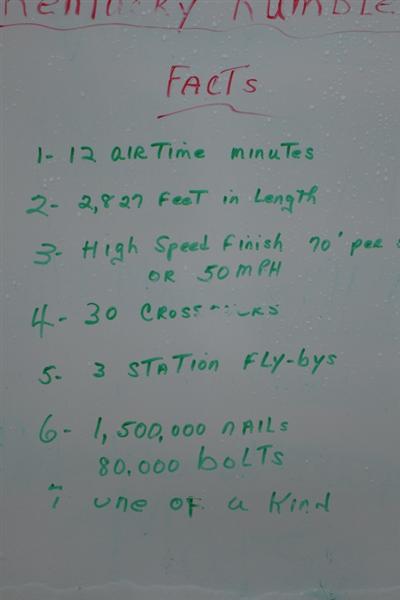 Kentucky Rumble
FACTS
1- 12 AIRTime minutes
2- 2,827 FeeT in Length
3- High Speed Finish 70' per
OR 50 MPH
4- 30
5- 3 STATion FLY-bys
6- 1,500,000 nAILs
80,000 boLTs
7 one of a Kind